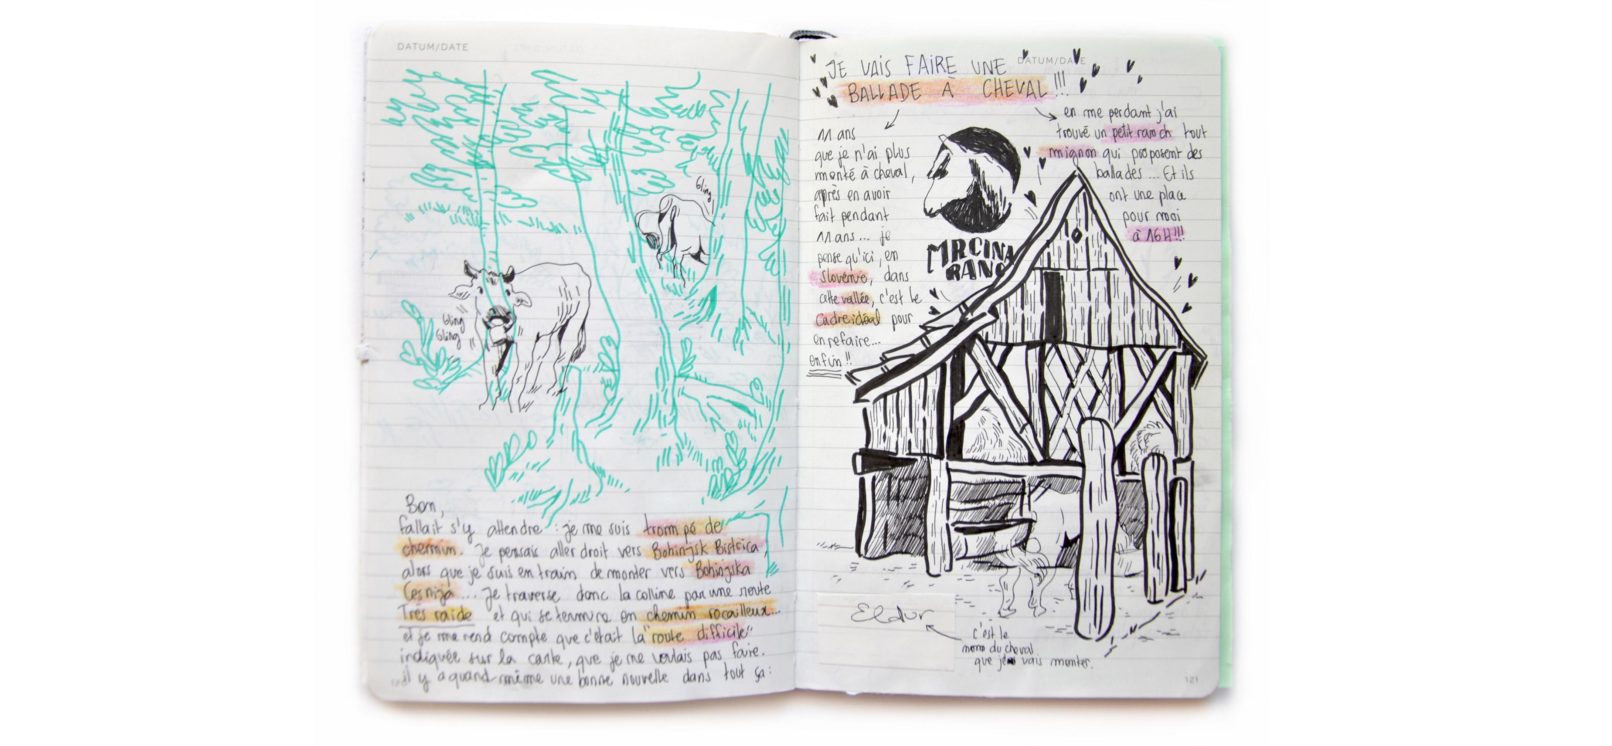 DATUM/DATE
bling
bling
bling
Bon,
fallait s'y attendre : je me suis trompé de
chemin. Je pensais aller droit vers Bohinjsk Bistrica,
alors que je suis en train de monter vers Bohinjska
Cesnija.... Je traverse donc la colline par une route
Très raide et qui se termine en chemin rocailleux...
et je me rend compte que c'était la "route difficile"
indiquée sur la carte, que je ne voulais pas faire.
il y a quand même une bonne nouvelle dans tout ça :
DATUM/DATE
JE VAIS FAIRE UNE
BALLADE À CHEVAL !!!
11 ans
que je n'ai plus
monté à cheval,
après en avoir
fait pendant
11 ans... je
pense qu'ici, en
Slovénie, dans
cette vallée, c'est le
Cadre idéal pour
en refaire...
enfin !!
en me perdant j'ai
trouvé un petit ranch tout
mignon qui proposent des
ballades ... Et ils
ont une place
pour moi
à 16H !!!
MRCINA
RANC
Eldur
c'est le
nom du cheval
que je vais monter.
121